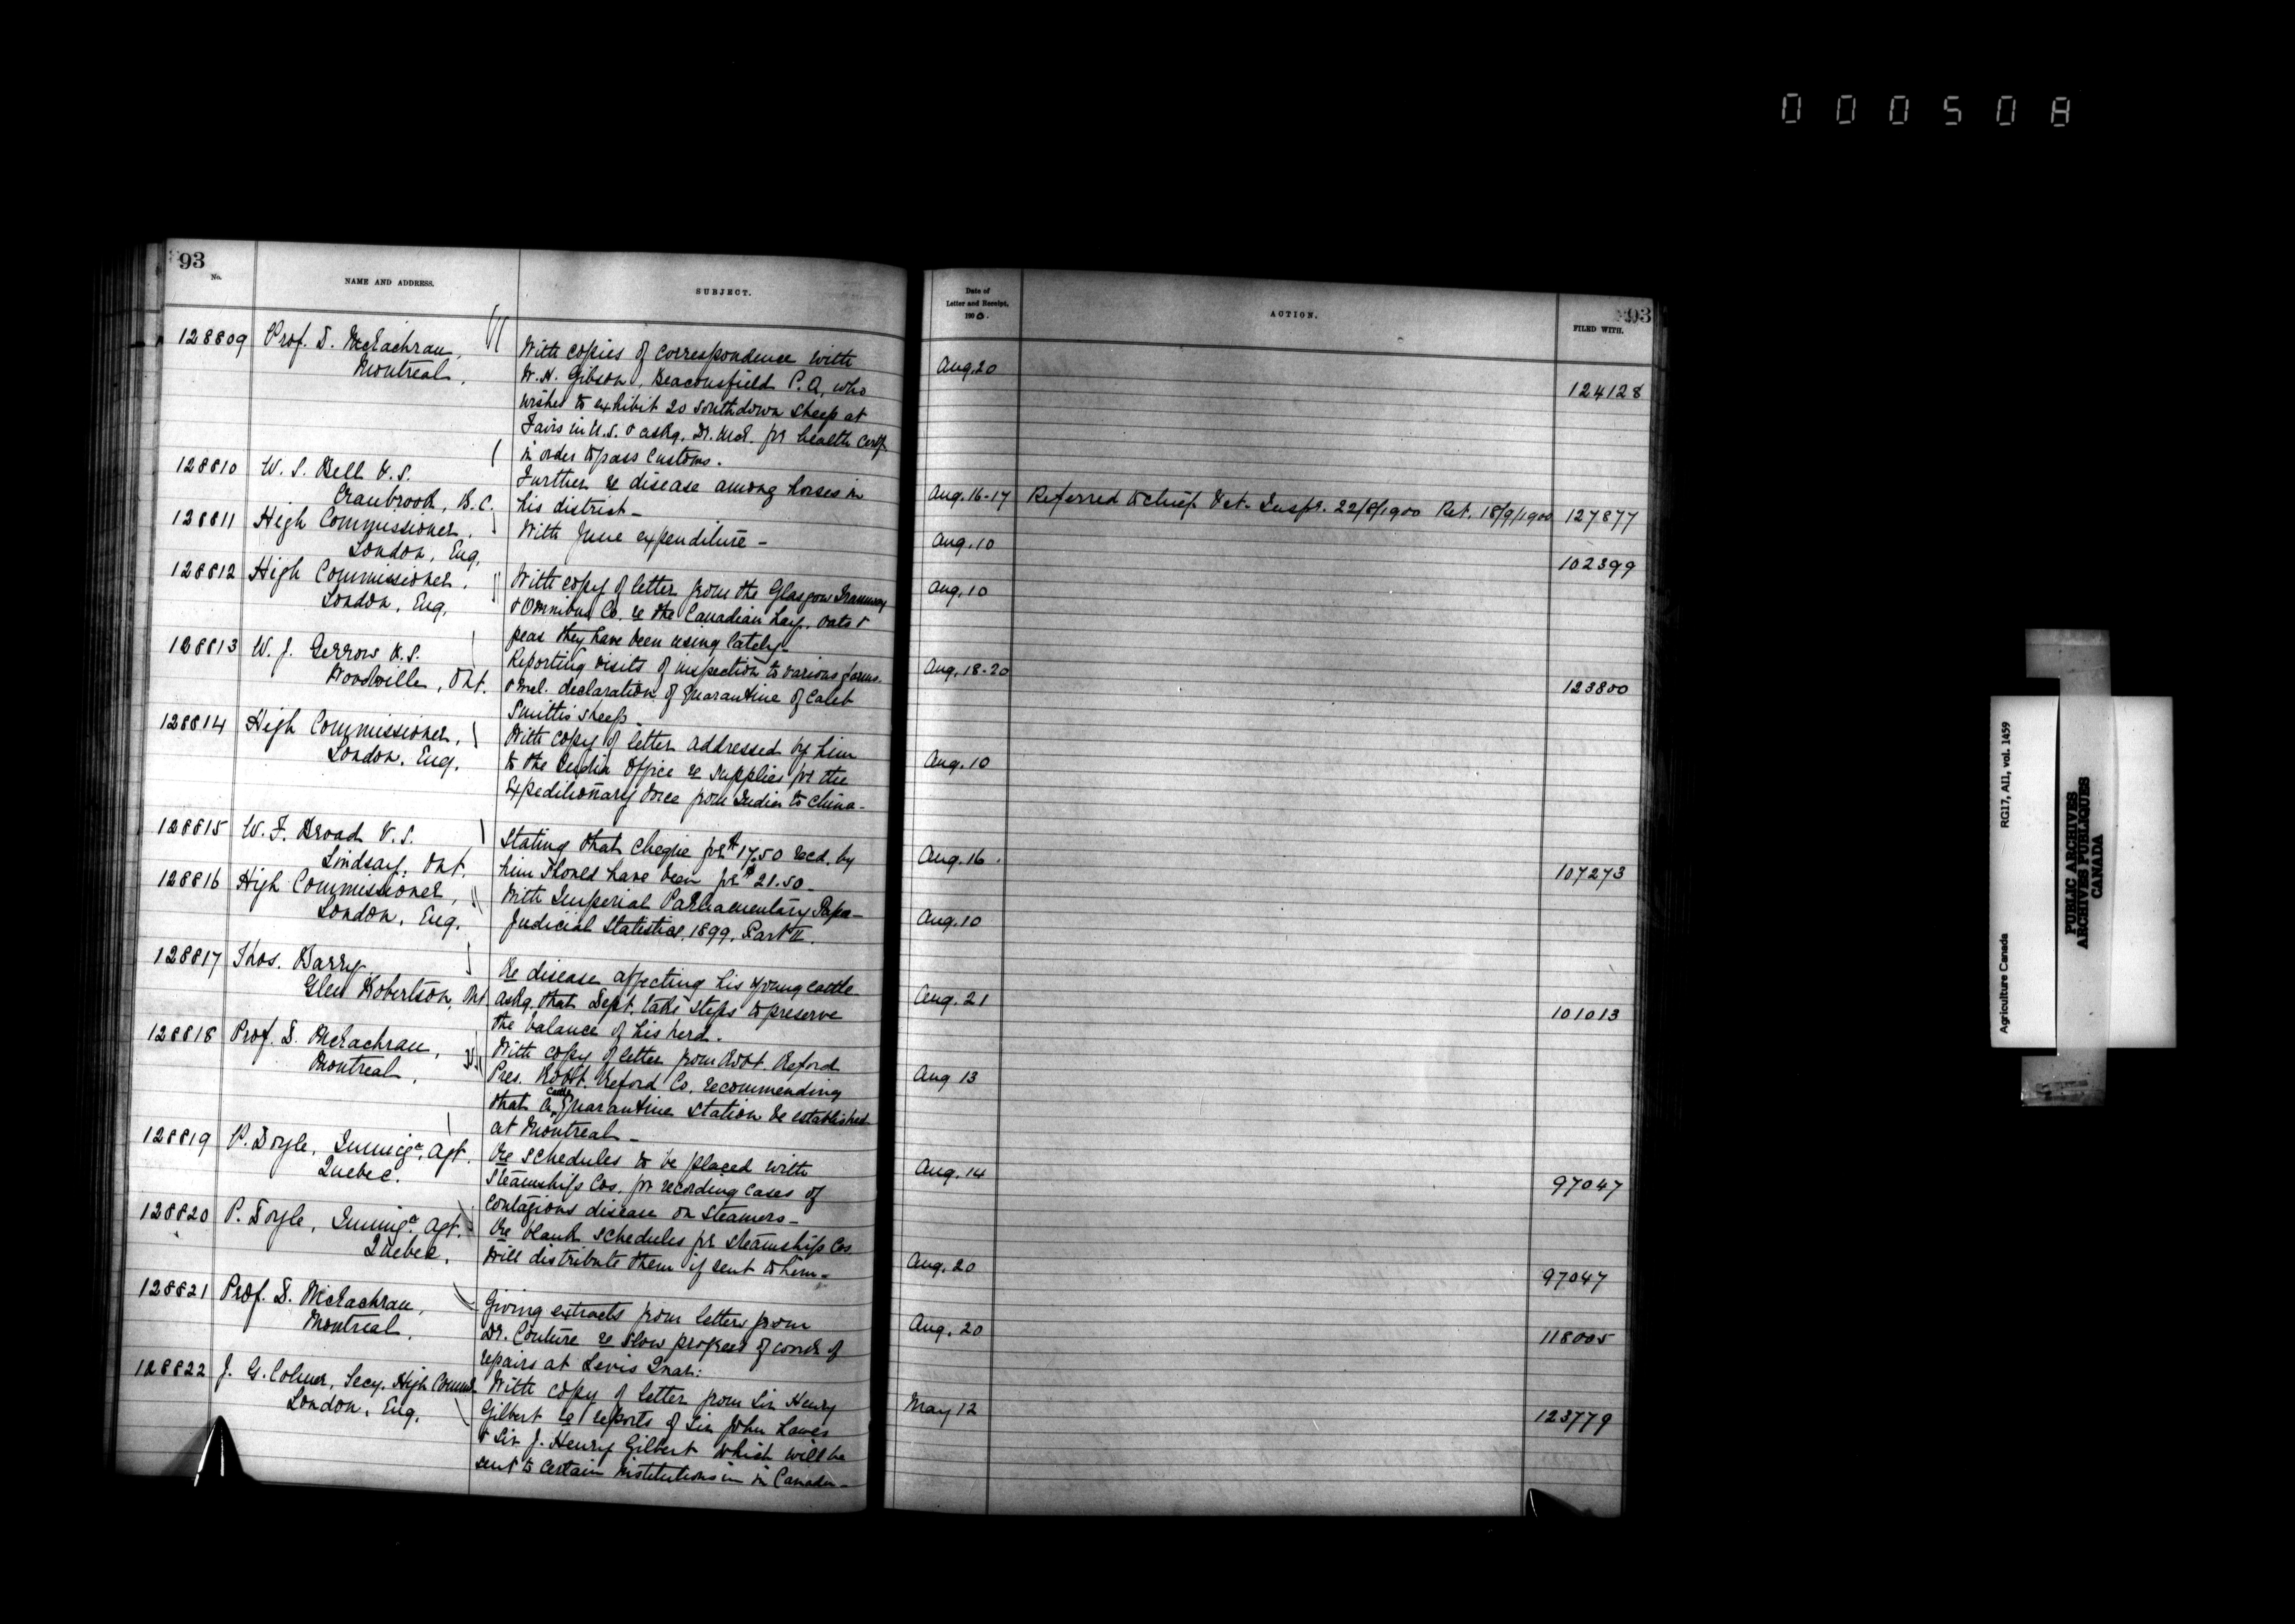 000508
93
No.
NAME AND ADDRESS.
SUBJECT.
128809 Prof. D. McEachran,
Montreal,
With copies of correspondence with
W. H. Gibson, Beaconsfield P.Q, who
wishes to exhibit 20 Southdown sheep at
Fairs in U.S. & askg. Dr. McE. for health Certf.
in order to pass Customs.
128810 W. S. Bell V.S.
Cranbrook, B.C.
Further re disease among horses in
his district -
128811 High Commissioner,
London, Eng,
With June expenditure -
128812 High Commissioner,
London, Eng,
With copy of letter from the Glasgow Tramway
& Omnibus Co. re the Canadian hay, oats &
peas they have been using lately -
128813 W. J. Gerrow V.S.
Woodville, Ont.
Reporting visits of inspection to various farms.
& incl. declaration of Quarantine of Caleb
Smith's sheep
128814 High Commissioner,
London, Eng,
With copy of letter addressed by him
to the India Office re supplies for the
Expeditionary Force from India to China -
128815 W. F. Broad V.S.
Lindsay, Ont.
Stating that cheque for $17.50 recd. by
him should have been for $21.50 -
128816 High Commissioner,
London, Eng,
With Imperial Parliamentary Paper -
Judicial Statistics, 1899, Part II.
128817 Thos. Barry,
Glen Robertson, Ont
Re disease affecting his young cattle
askg. that Dept. take steps to preserve
the balance of his herd.
128818 Prof. D. McEachran,
Montreal,
With copy of letter from Robt. Reford
Pres. Robt. Reford Co. recommending
that a Cattle Quarantine Station be established
at Montreal -
128819 P. Doyle, Immign. Agt.
Quebec.
Re schedules to be placed with
Steamship Cos. for recording cases of
contagious disease on steamers -
128820 P. Doyle, Immign. Agt.
Quebec,
Re blank schedules for steamship Cos
will distribute them if sent to him -
128821 Prof. D. McEachran,
Montreal,
Giving extracts from letters from
Dr. Couture re slow progress of work of
repairs at Levis Quar:
128822 J. G. Colmer, Secy. High Commr.
London, Eng,
With copy of letter from Sir Henry
Gilbert re reports of Sir John Lawes
& Sir J. Henry Gilbert which will be
sent to certain institutions in in Canada -
Date of
Letter and Receipt,
1900.
ACTION.
93
FILED WITH.
Aug. 20
124128
Aug. 16-17 Referred to Chief Vet. Inspr. 22/8/1900 Ret. 18/9/1900 127877
Aug. 10
102399
Aug. 10
Aug. 18-20
123800
Aug. 10
Aug. 16
107273
Aug. 10
Aug. 21
101013
Aug 13
Aug. 14
97047
Aug. 20
97047
Aug. 20
118005
May 12
123779
Agriculture Canada RG17, AII, vol. 1459
PUBLIC ARCHIVES
ARCHIVES PUBLIQUES
CANADA